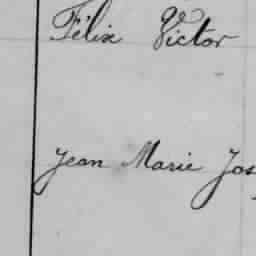 Félix Victor
Jean Marie Jos